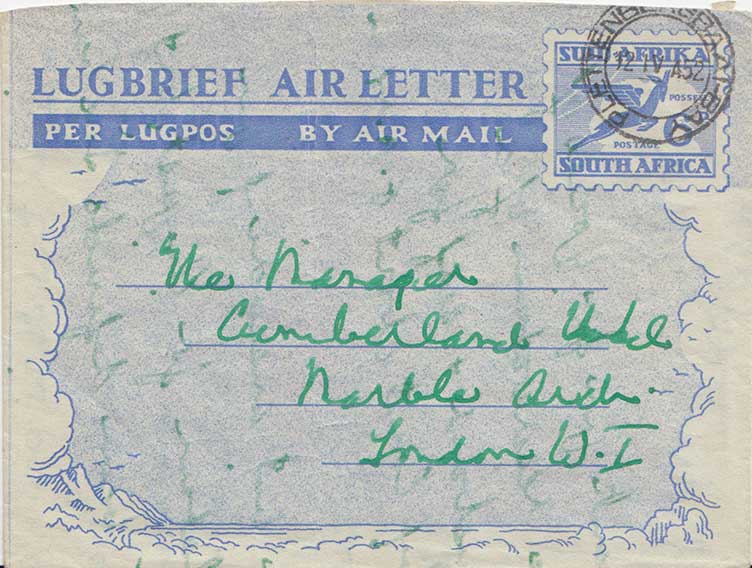 LUGBRIEF AIR LETTER
PER LUGPOS BY AIR MAIL
PLETTENBERGSBAAI-BAY
12 IV 52
SUID-AFRIKA
POSSEËL
POSTAGE
6
SOUTH AFRICA
The Manager
Cumberland Hotel
Marble Arch.
London W.I